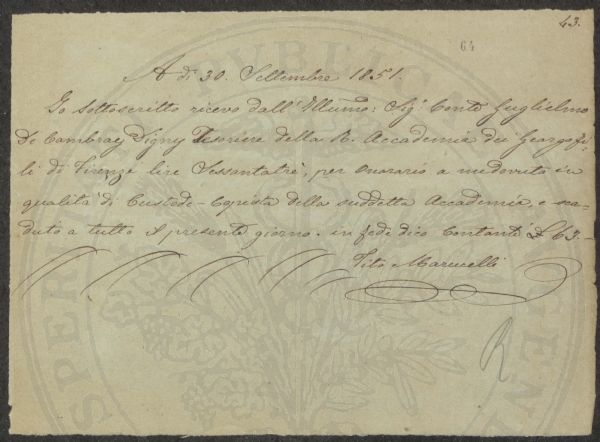 43.
64
A dì 30. Settembre 1851.
Io sottoscritto ricevo dall' Illumo: Sigr: Conte Guglielmo
De Cambray Digny Tesoriere della R. Accademia dei Georgofi-
li di Firenze lire Sessantatrè, per Onorario a me dovuto in
qualità di Custode-Copista della suddetta Accademia, e sca-
duto a tutto il presente giorno. in fede dico Contanti £ 63.-
Tito Marucelli
R